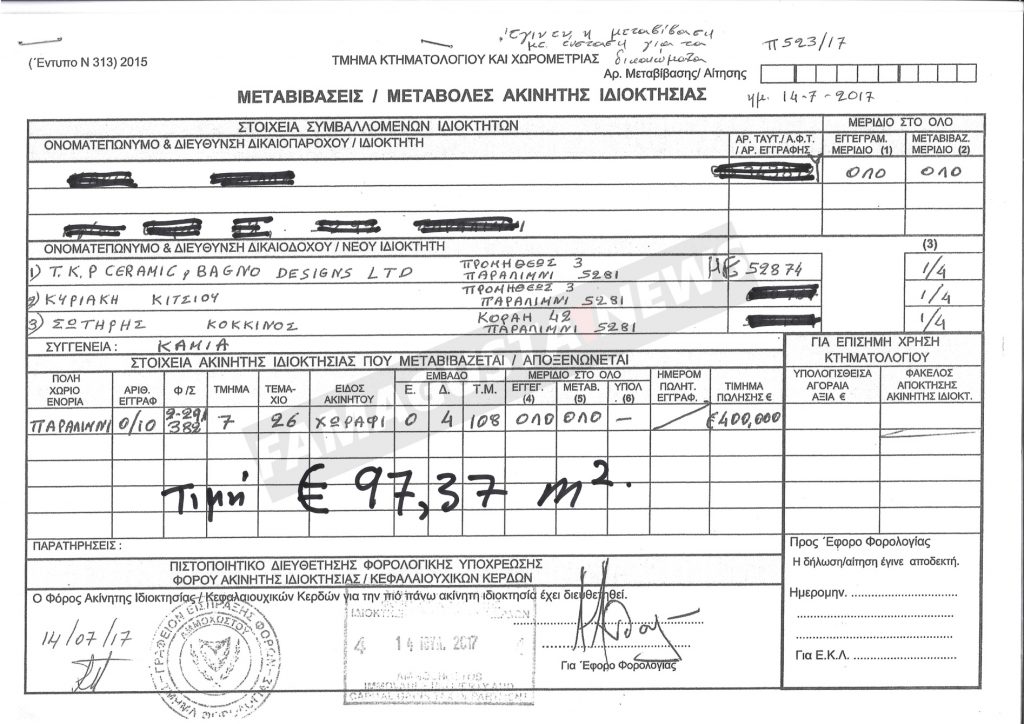 Έγινε η μεταβίβαση
με ένσταση για τα
δικαιώματα
Π523/17
(Έντυπο Ν 313) 2015
ΤΜΗΜΑ ΚΤΗΜΑΤΟΛΟΓΙΟΥ ΚΑΙ ΧΩΡΟΜΕΤΡΙΑΣ
Αρ. Μεταβίβασης/ Αίτησης
ΜΕΤΑΒΙΒΑΣΕΙΣ / ΜΕΤΑΒΟΛΕΣ ΑΚΙΝΗΤΗΣ ΙΔΙΟΚΤΗΣΙΑΣ
ημ. 14-7-2017
ΣΤΟΙΧΕΙΑ ΣΥΜΒΑΛΛΟΜΕΝΩΝ ΙΔΙΟΚΤΗΤΩΝ
ΜΕΡΙΔΙΟ ΣΤΟ ΟΛΟ
ΟΝΟΜΑΤΕΠΩΝΥΜΟ & ΔΙΕΥΘΥΝΣΗ ΔΙΚΑΙΟΠΑΡΟΧΟΥ / ΙΔΙΟΚΤΗΤΗ
ΑΡ. ΤΑΥΤ./ Α.Φ.Τ. / ΑΡ. ΕΓΓΡΑΦΗΣ
ΕΓΓΕΓΡΑΜ. ΜΕΡΙΔΙΟ (1)
ΜΕΤΑΒΙΒΑΖ. ΜΕΡΙΔΙΟ (2)
ΟΛΟ ΟΛΟ
ΟΝΟΜΑΤΕΠΩΝΥΜΟ & ΔΙΕΥΘΥΝΣΗ ΔΙΚΑΙΟΔΟΧΟΥ / ΝΕΟΥ ΙΔΙΟΚΤΗΤΗ
(3)
1) T.K.P CERAMIC, BAGNO DESIGNS LTD ΠΡΟΜΗΘΕΩΣ 3 ΠΑΡΑΛΙΜΝΙ 5281 ΗΕ 52874 1/4
2) ΚΥΡΙΑΚΗ ΚΙΤΣΙΟΥ ΠΡΟΜΗΘΕΩΣ 3 ΠΑΡΑΛΙΜΝΙ 5281 1/4
3) ΣΩΤΗΡΗΣ ΚΟΚΚΙΝΟΣ ΚΟΡΑΗ 42 ΠΑΡΑΛΙΜΝΙ 5281 1/4
ΣΥΓΓΕΝΕΙΑ : ΚΑΜΙΑ
ΓΙΑ ΕΠΙΣΗΜΗ ΧΡΗΣΗ
ΚΤΗΜΑΤΟΛΟΓΙΟΥ
ΣΤΟΙΧΕΙΑ ΑΚΙΝΗΤΗΣ ΙΔΙΟΚΤΗΣΙΑΣ ΠΟΥ ΜΕΤΑΒΙΒΑΖΕΤΑΙ / ΑΠΟΞΕΝΩΝΕΤΑΙ
ΠΟΛΗ ΧΩΡΙΟ ΕΝΟΡΙΑ
ΑΡΙΘ. ΕΓΓΡΑΦ
Φ /Σ
ΤΜΗΜΑ
ΤΕΜΑ-ΧΙΟ
ΕΙΔΟΣ ΑΚΙΝΗΤΟΥ
ΕΜΒΑΔΟ
Ε. Δ. Τ.Μ.
ΜΕΡΙΔΙΟ ΣΤΟ ΟΛΟ
ΕΓΓΕΓ. (4) ΜΕΤΑΒ. (5) ΥΠΟΛ. (6)
ΗΜΕΡΟΜ ΠΩΛΗΤ. ΕΓΓΡΑΦ.
ΤΙΜΗΜΑ ΠΩΛΗΣΗΣ €
ΥΠΟΛΟΓΙΣΘΕΙΣΑ ΑΓΟΡΑΙΑ ΑΞΙΑ €
ΦΑΚΕΛΟΣ ΑΠΟΚΤΗΣΗΣ ΑΚΙΝΗΤΗΣ ΙΔΙΟΚΤ.
ΠΑΡΑΛΙΜΝΙ 0/10 2-291-382 7 26 ΧΩΡΑΦΙ 0 4 108 ΟΛΟ ΟΛΟ — €400,000
FAMAGUSTA NEWS
Τιμή € 97,37 m².
ΠΑΡΑΤΗΡΗΣΕΙΣ :
ΠΙΣΤΟΠΟΙΗΤΙΚΟ ΔΙΕΥΘΕΤΗΣΗΣ ΦΟΡΟΛΟΓΙΚΗΣ ΥΠΟΧΡΕΩΣΗΣ
ΦΟΡΟΥ ΑΚΙΝΗΤΗΣ ΙΔΙΟΚΤΗΣΙΑΣ / ΚΕΦΑΛΑΙΟΥΧΙΚΩΝ ΚΕΡΔΩΝ
Ο Φόρος Ακίνητης Ιδιοκτησίας / Κεφαλαιουχικών Κερδών για την πιο πάνω ακίνητη ιδιοκτησία έχει διευθετηθεί.
14/07/17
ΓΡΑΦΕΙΟΝ ΕΙΣΠΡΑΞΗΣ ΦΟΡΩΝ
ΑΜΜΟΧΩΣΤΟΥ
4 14 ΙΟΥΛ. 2017
Για Έφορο Φορολογίας
Προς Έφορο Φορολογίας
Η δήλωση/αίτηση έγινε αποδεκτή.
Ημερομην.
Για Ε.Κ.Λ.